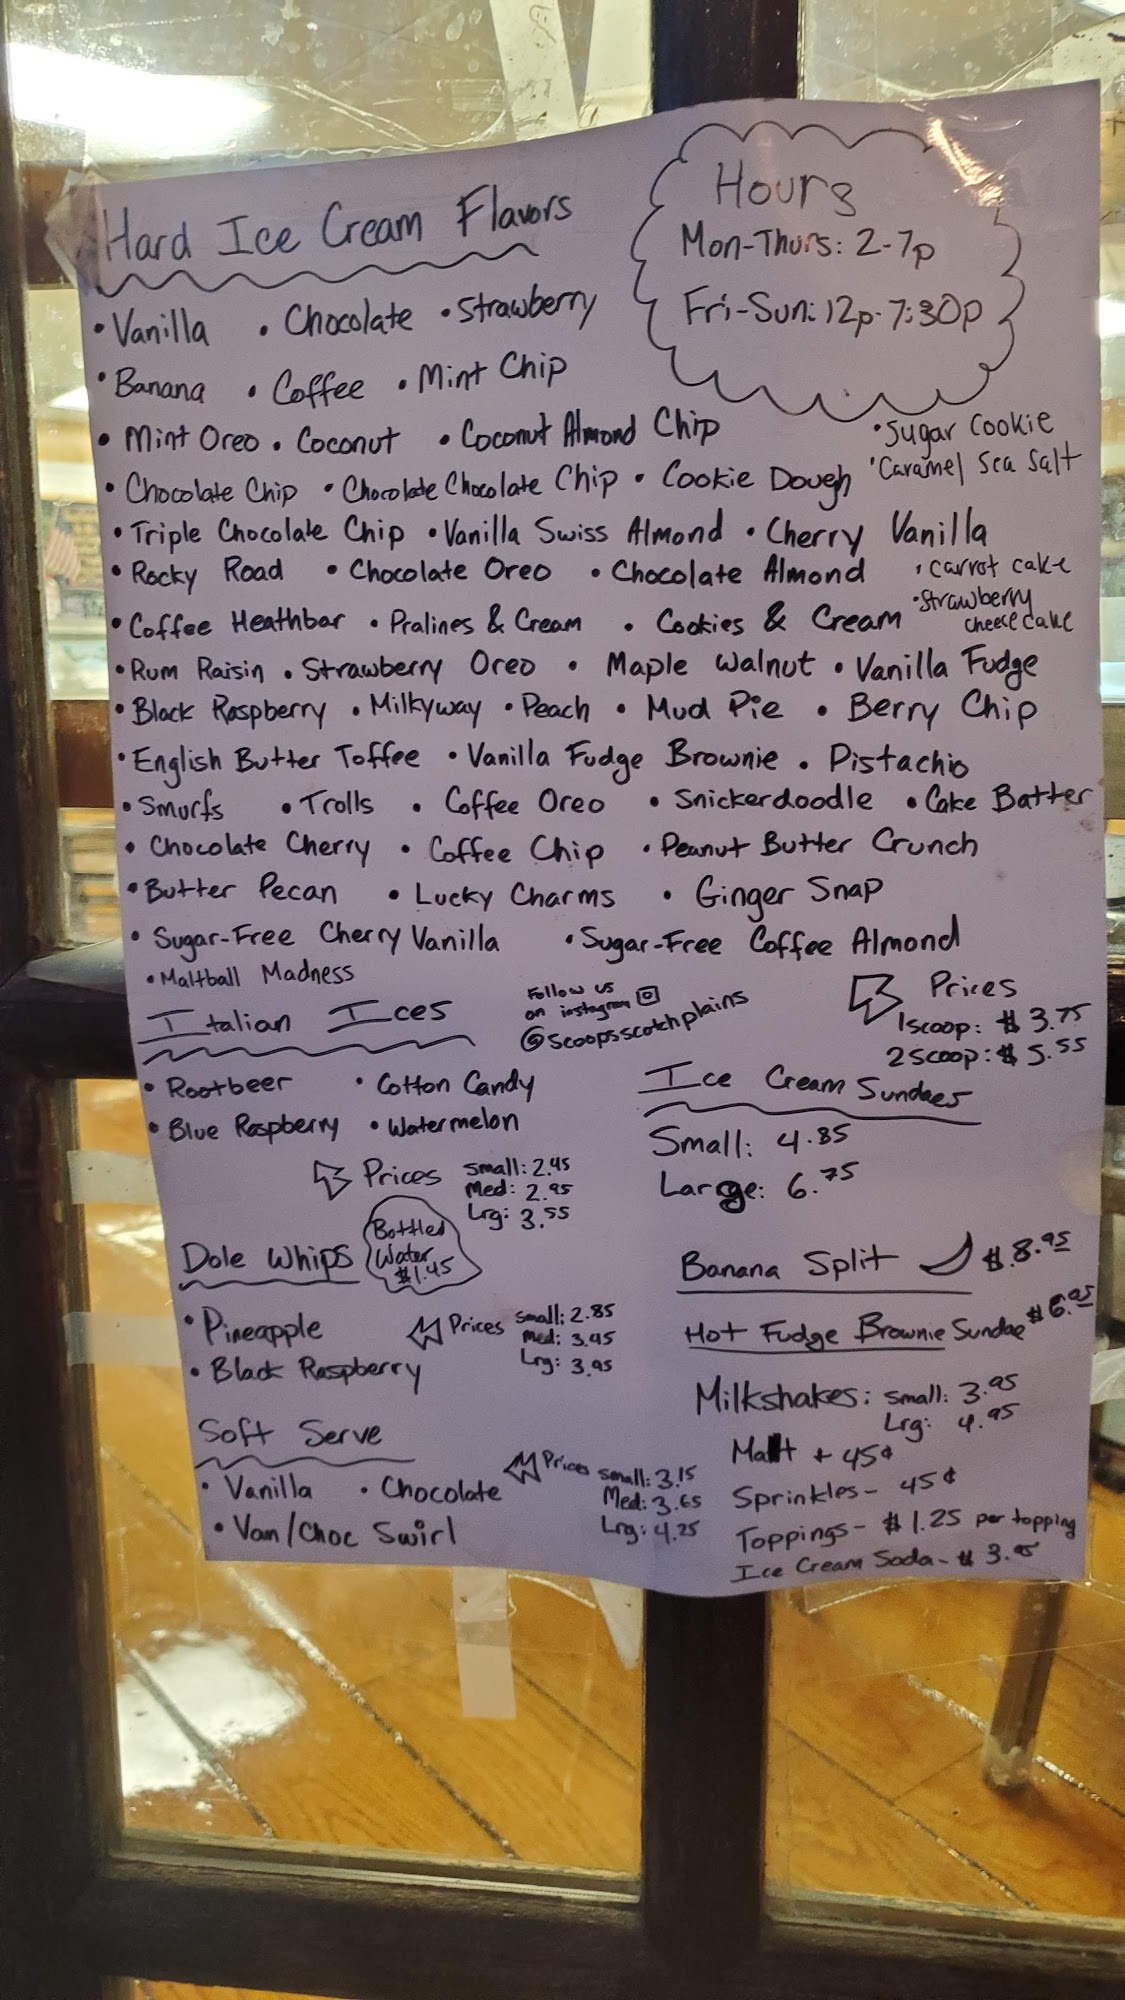 Hard Ice Cream Flavors
Hours
Mon-Thurs: 2-7p
Fri-Sun: 12p-7:30p
• Vanilla • Chocolate • Strawberry
• Banana • Coffee • Mint Chip
• Mint Oreo • Coconut • Coconut Almond Chip
• Sugar Cookie
• Caramel Sea Salt
• Chocolate Chip • Chocolate Chocolate Chip • Cookie Dough
• Triple Chocolate Chip • Vanilla Swiss Almond • Cherry Vanilla
• Rocky Road • Chocolate Oreo • Chocolate Almond
• Carrot cake
• Strawberry
cheesecake
• Coffee Heathbar • Pralines & Cream • Cookies & Cream
• Rum Raisin • Strawberry Oreo • Maple Walnut • Vanilla Fudge
• Black Raspberry • Milkyway • Peach • Mud Pie • Berry Chip
• English Butter Toffee • Vanilla Fudge Brownie • Pistachio
• Smurfs • Trolls • Coffee Oreo • Snickerdoodle • Cake Batter
• Chocolate Cherry • Coffee Chip • Peanut Butter Crunch
• Butter Pecan • Lucky Charms • Ginger Snap
• Sugar-Free Cherry Vanilla • Sugar-Free Coffee Almond
• Maltball Madness
Prices
1 scoop: $3.75
2 scoop: $5.55
Follow us
on instagram
@scoopsscotchplains
Italian Ices
• Rootbeer • Cotton Candy
• Blue Raspberry • Watermelon
Prices
Small: 2.45
Med: 2.95
Lrg: 3.55
Bottled
Water
$1.45
Dole Whips
• Pineapple
• Black Raspberry
Prices
Small: 2.85
Med: 3.45
Lrg: 3.95
Soft Serve
• Vanilla • Chocolate
• Van/Choc Swirl
Prices
Small: 3.15
Med: 3.65
Lrg: 4.25
Ice Cream Sundaes
Small: 4.85
Large: 6.75
Banana Split $8.95
Hot Fudge Brownie Sundae $6.95
Milkshakes: Small: 3.95
Lrg: 4.95
Malt + 45¢
Sprinkles - 45¢
Toppings - $1.25 per topping
Ice Cream Soda - $3.95